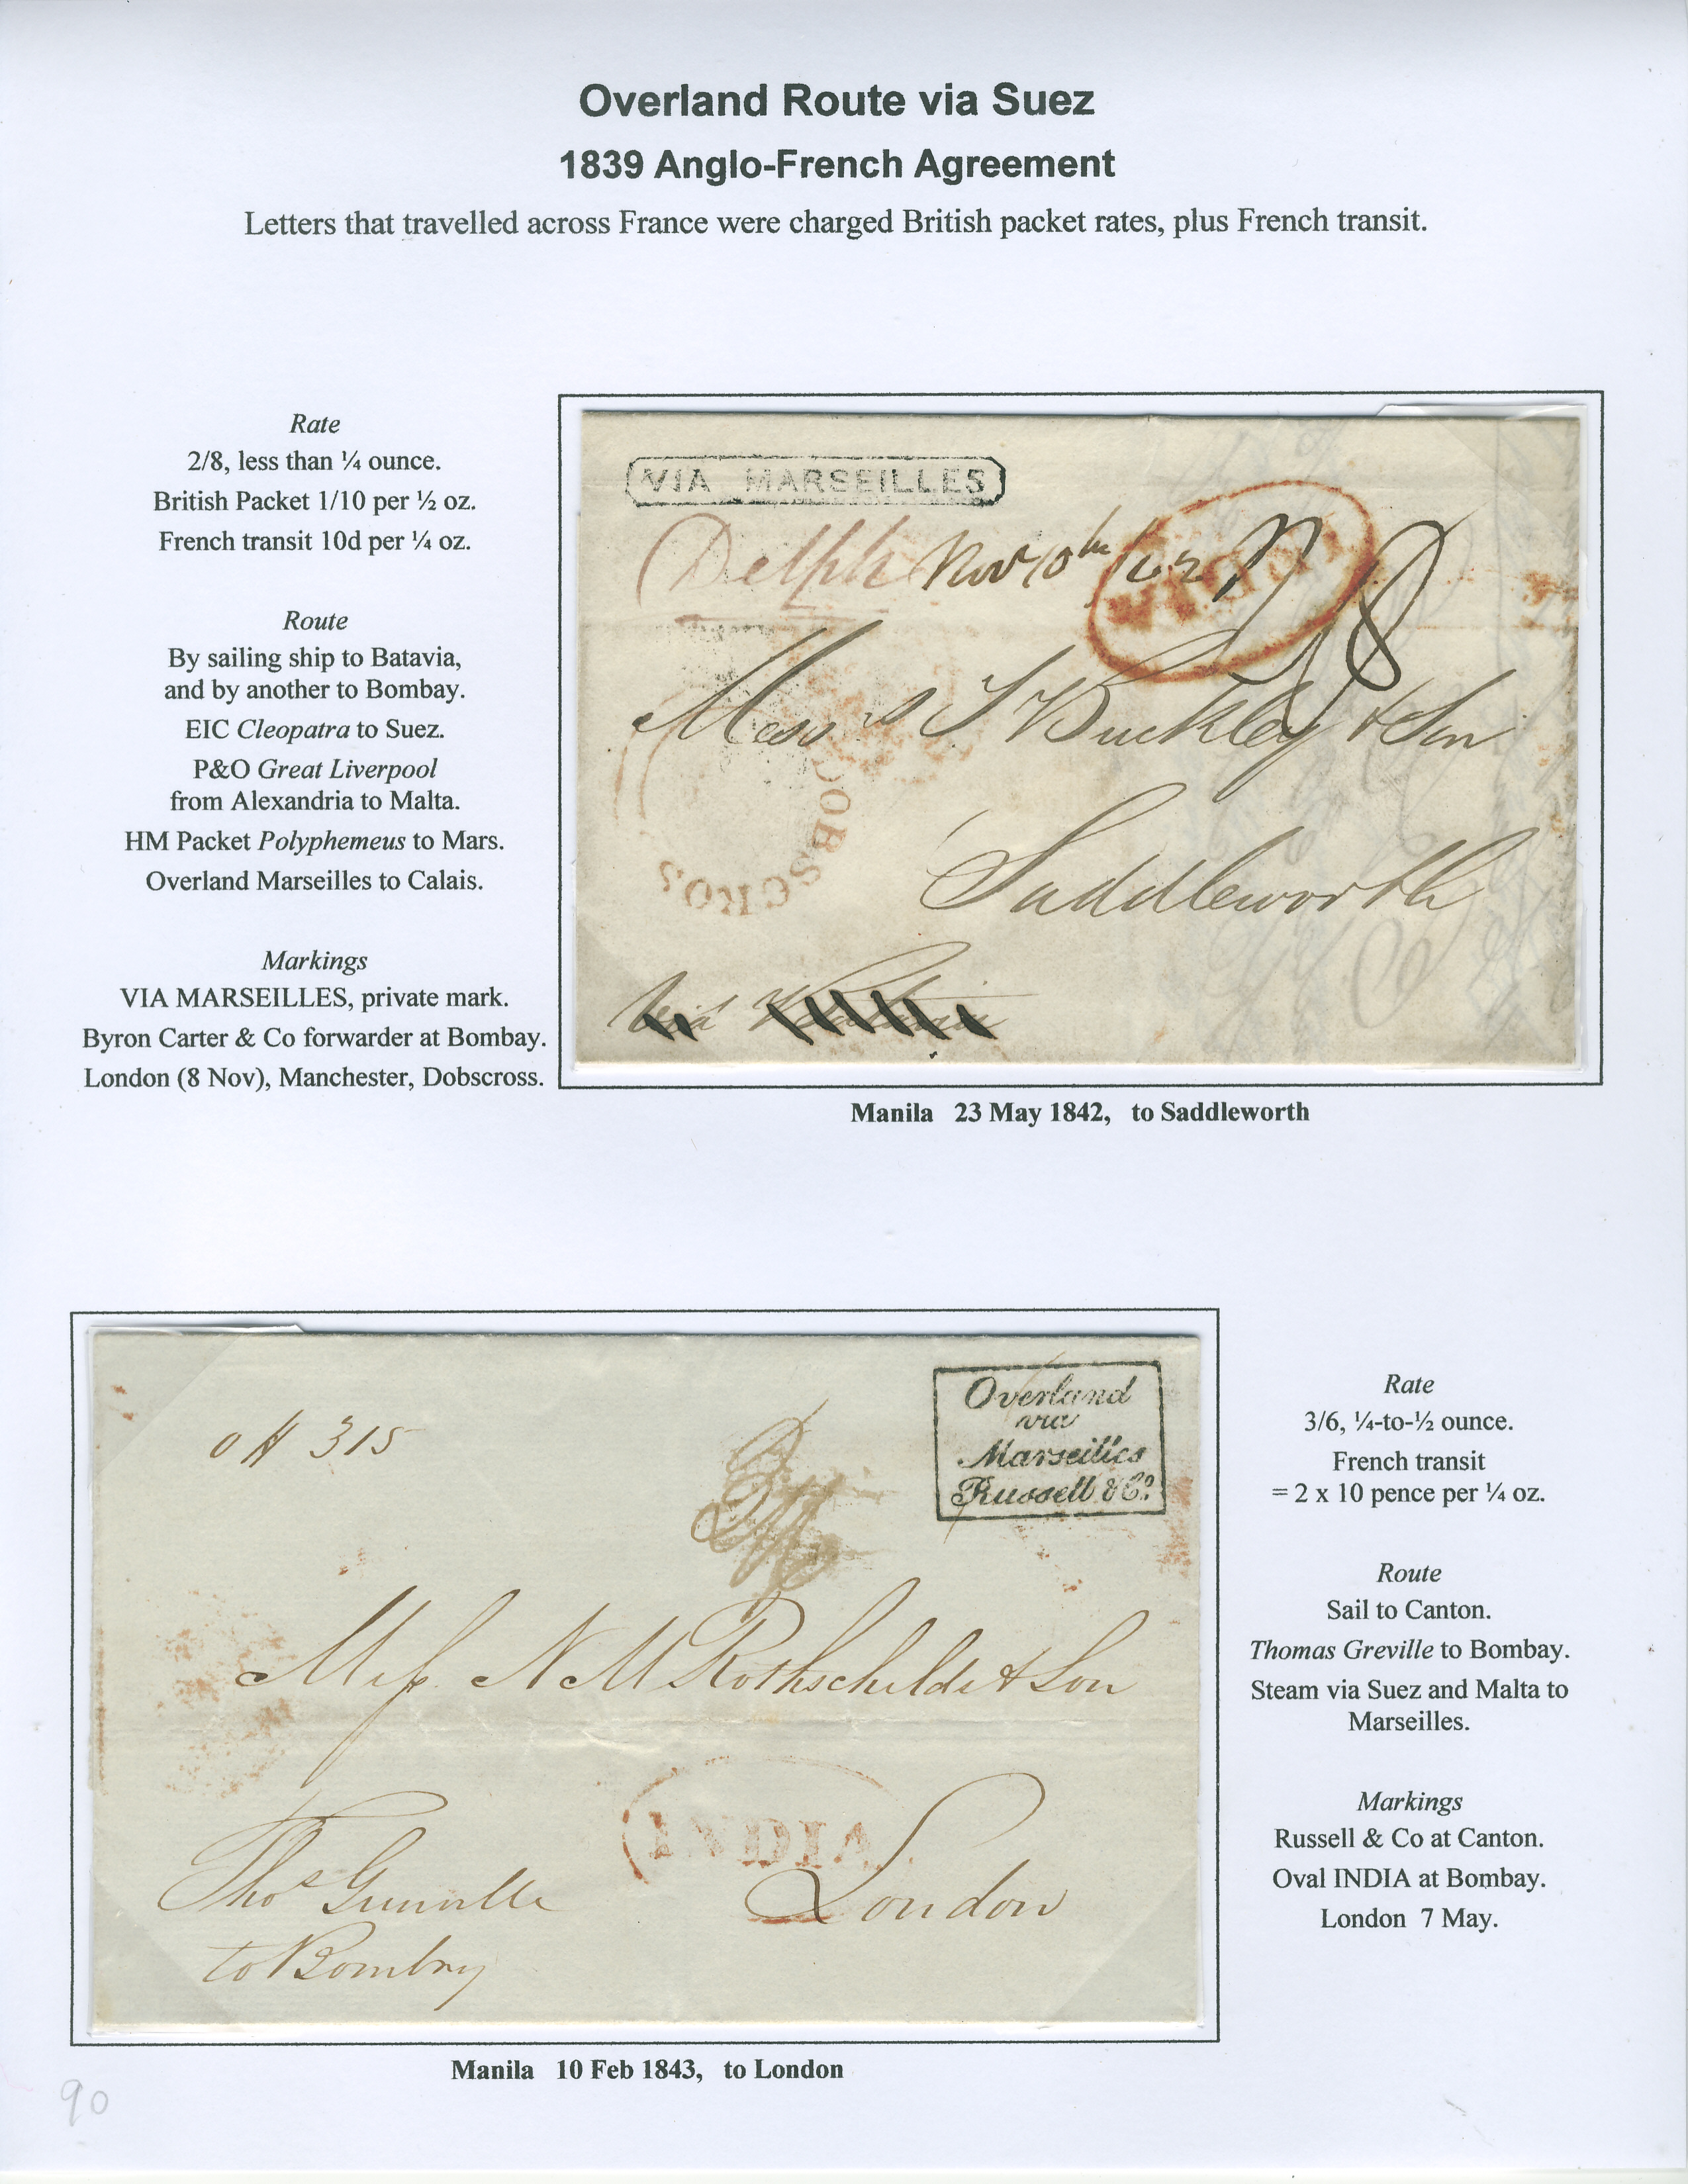 Overland Route via Suez
1839 Anglo-French Agreement
Letters that travelled across France were charged British packet rates, plus French transit.
Rate
2/8, less than ¼ ounce.
British Packet 1/10 per ½ oz.
French transit 10d per ¼ oz.
Route
By sailing ship to Batavia,
and by another to Bombay.
EIC Cleopatra to Suez.
P&O Great Liverpool
from Alexandria to Malta.
HM Packet Polyphemeus to Mars.
Overland Marseilles to Calais.
Markings
VIA MARSEILLES, private mark.
Byron Carter & Co forwarder at Bombay.
London (8 Nov), Manchester, Dobscross.
VIA MARSEILLES
Delph Novr 10th /42
INDIA
Messrs J Buckley & Son
DOBSCROS
Saddleworth
Via Batavia
Manila 23 May 1842, to Saddleworth
315
Overland
via
Marseilles
Russell & Co.
Mess N M Rothschild & Son
INDIA
Thos Greville
London
to Bombay
Manila 10 Feb 1843, to London
Rate
3/6, ¼-to-½ ounce.
French transit
= 2 x 10 pence per ¼ oz.
Route
Sail to Canton.
Thomas Greville to Bombay.
Steam via Suez and Malta to
Marseilles.
Markings
Russell & Co at Canton.
Oval INDIA at Bombay.
London 7 May.
90